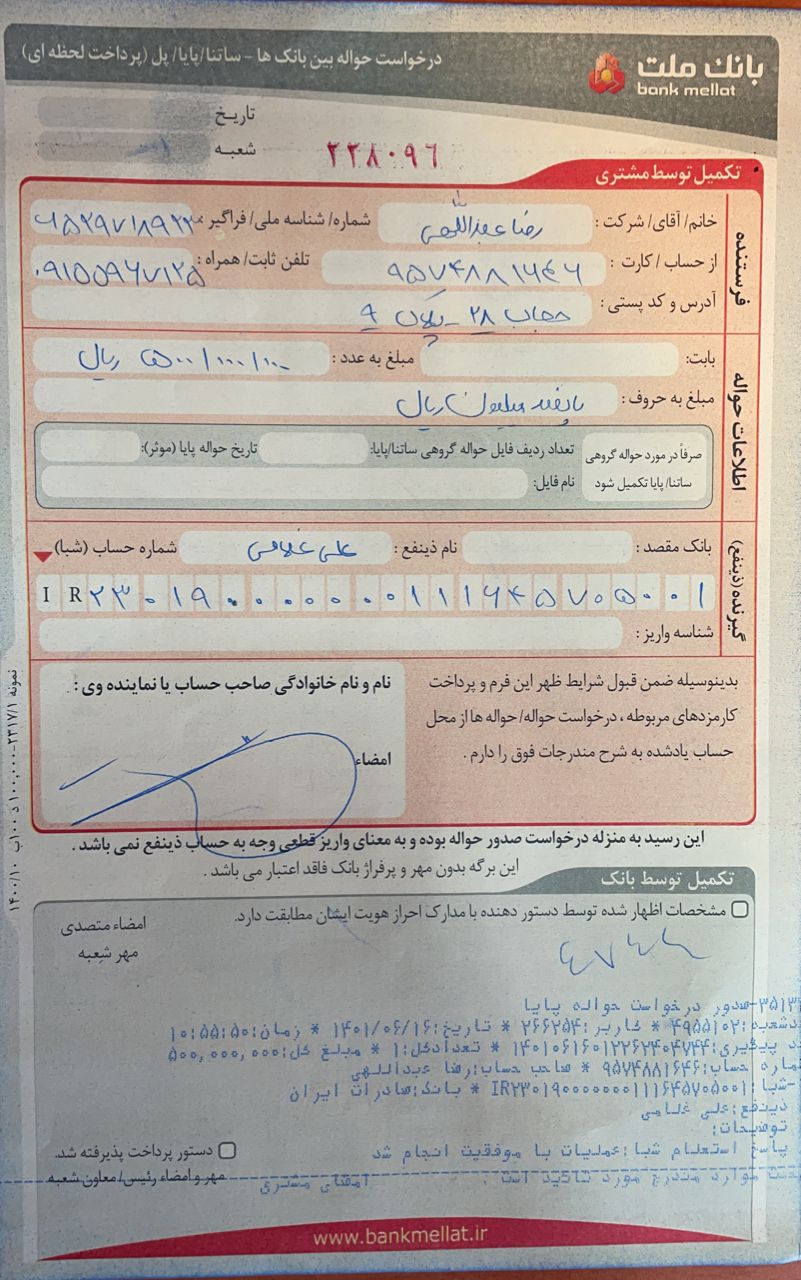 درخواست حواله بین بانک ها - ساتنا/پایا/ پل (پرداخت لحظه ای)
بانک ملت
bank mellat
تاریخ
شعبه
۲۲۸۰۹۶
تکمیل توسط مشتری
فرستنده
خانم/ آقای/ شرکت : رضا عبداللهی شماره/ شناسه ملی/ فراگیر :
از حساب / کارت : ۹۵۷۴۸۸۱۶۴۶ تلفن ثابت/ همراه : ۰۹۱۵۵۹۶۷۱۲۵
آدرس و کد پستی : حجاب ۲۸ - پلاک ۹
اطلاعات حواله
بابت: مبلغ به عدد : ۵۰۰/۰۰۰/۰۰۰ ریال
مبلغ به حروف : پانصد میلیون ریال
صرفاً در مورد حواله گروهی ساتنا/ پایا تکمیل شود
تعداد ردیف فایل حواله گروهی ساتنا/پایا: تاریخ حواله پایا (موثر):
نام فایل:
گیرنده (ذینفع)
بانک مقصد : نام ذینفع : علی غلامی شماره حساب (شبا)
IR۲۳۰۱۹۰۰۰۰۰۰۰۰۱۱۱۶۴۵۷۰۵۰۰۱
شناسه واریز :
بدینوسیله ضمن قبول شرایط ظهر این فرم و پرداخت
کارمزدهای مربوطه ، درخواست حواله/ حواله ها از محل
حساب یادشده به شرح مندرجات فوق را دارم .
نام و نام خانوادگی صاحب حساب یا نماینده وی :
امضاء
این رسید به منزله درخواست صدور حواله بوده و به معنای واریز قطعی وجه به حساب ذینفع نمی باشد .
این برگه بدون مهر و پرفراژ بانک فاقد اعتبار می باشد .
تکمیل توسط بانک
مشخصات اظهار شده توسط دستور دهنده با مدارک احراز هویت ایشان مطابقت دارد.
امضاء متصدی
مهر شعبه
صدور درخواست حواله پایا
۴۹۵۵۱۰۲ * کاربر:۲۶۶۲۵۴ * تاریخ:۱۴۰۱/۰۶/۱۶ * زمان:۱۰:۵۵:۵۰
پیگیری:۱۴۰۱۰۶۱۶۰۱۲۲۶۲۴۰۴۷۴۴ * تعدادکل:۱ * مبلغ کل:۵۰۰,۰۰۰,۰۰۰
حساب:۹۵۷۴۸۸۱۶۴۶ * صاحب حساب:رضا عبداللهی
شبا:IR۲۳۰۱۹۰۰۰۰۰۰۰۰۱۱۱۶۴۵۷۰۵۰۰۱ * بانک:صادرات ایران
ذینفع:علی غلامی
توضیحات:
پاسخ استعلام شبا:عملیات با موفقیت انجام شد
موارد مندرج مورد تائید است : امضای مشتری
دستور پرداخت پذیرفته شد.
مهر و امضاء رئیس/ معاون شعبه
www.bankmellat.ir
نمونه ۲۳۱۷/۱-۱۰۰,۰۰۰ د ۱۰۰ب ۱۴۰۰/۱۰